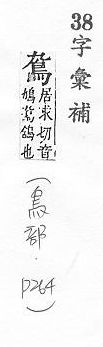 38字彙補
居求切音
鳩鴿也
(鳥部.p264)